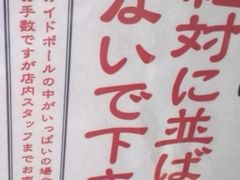 絶対に並ば
ないで下さ
ガイドポールの中がいっぱいの場合
お手数ですが店内スタッフまでお声